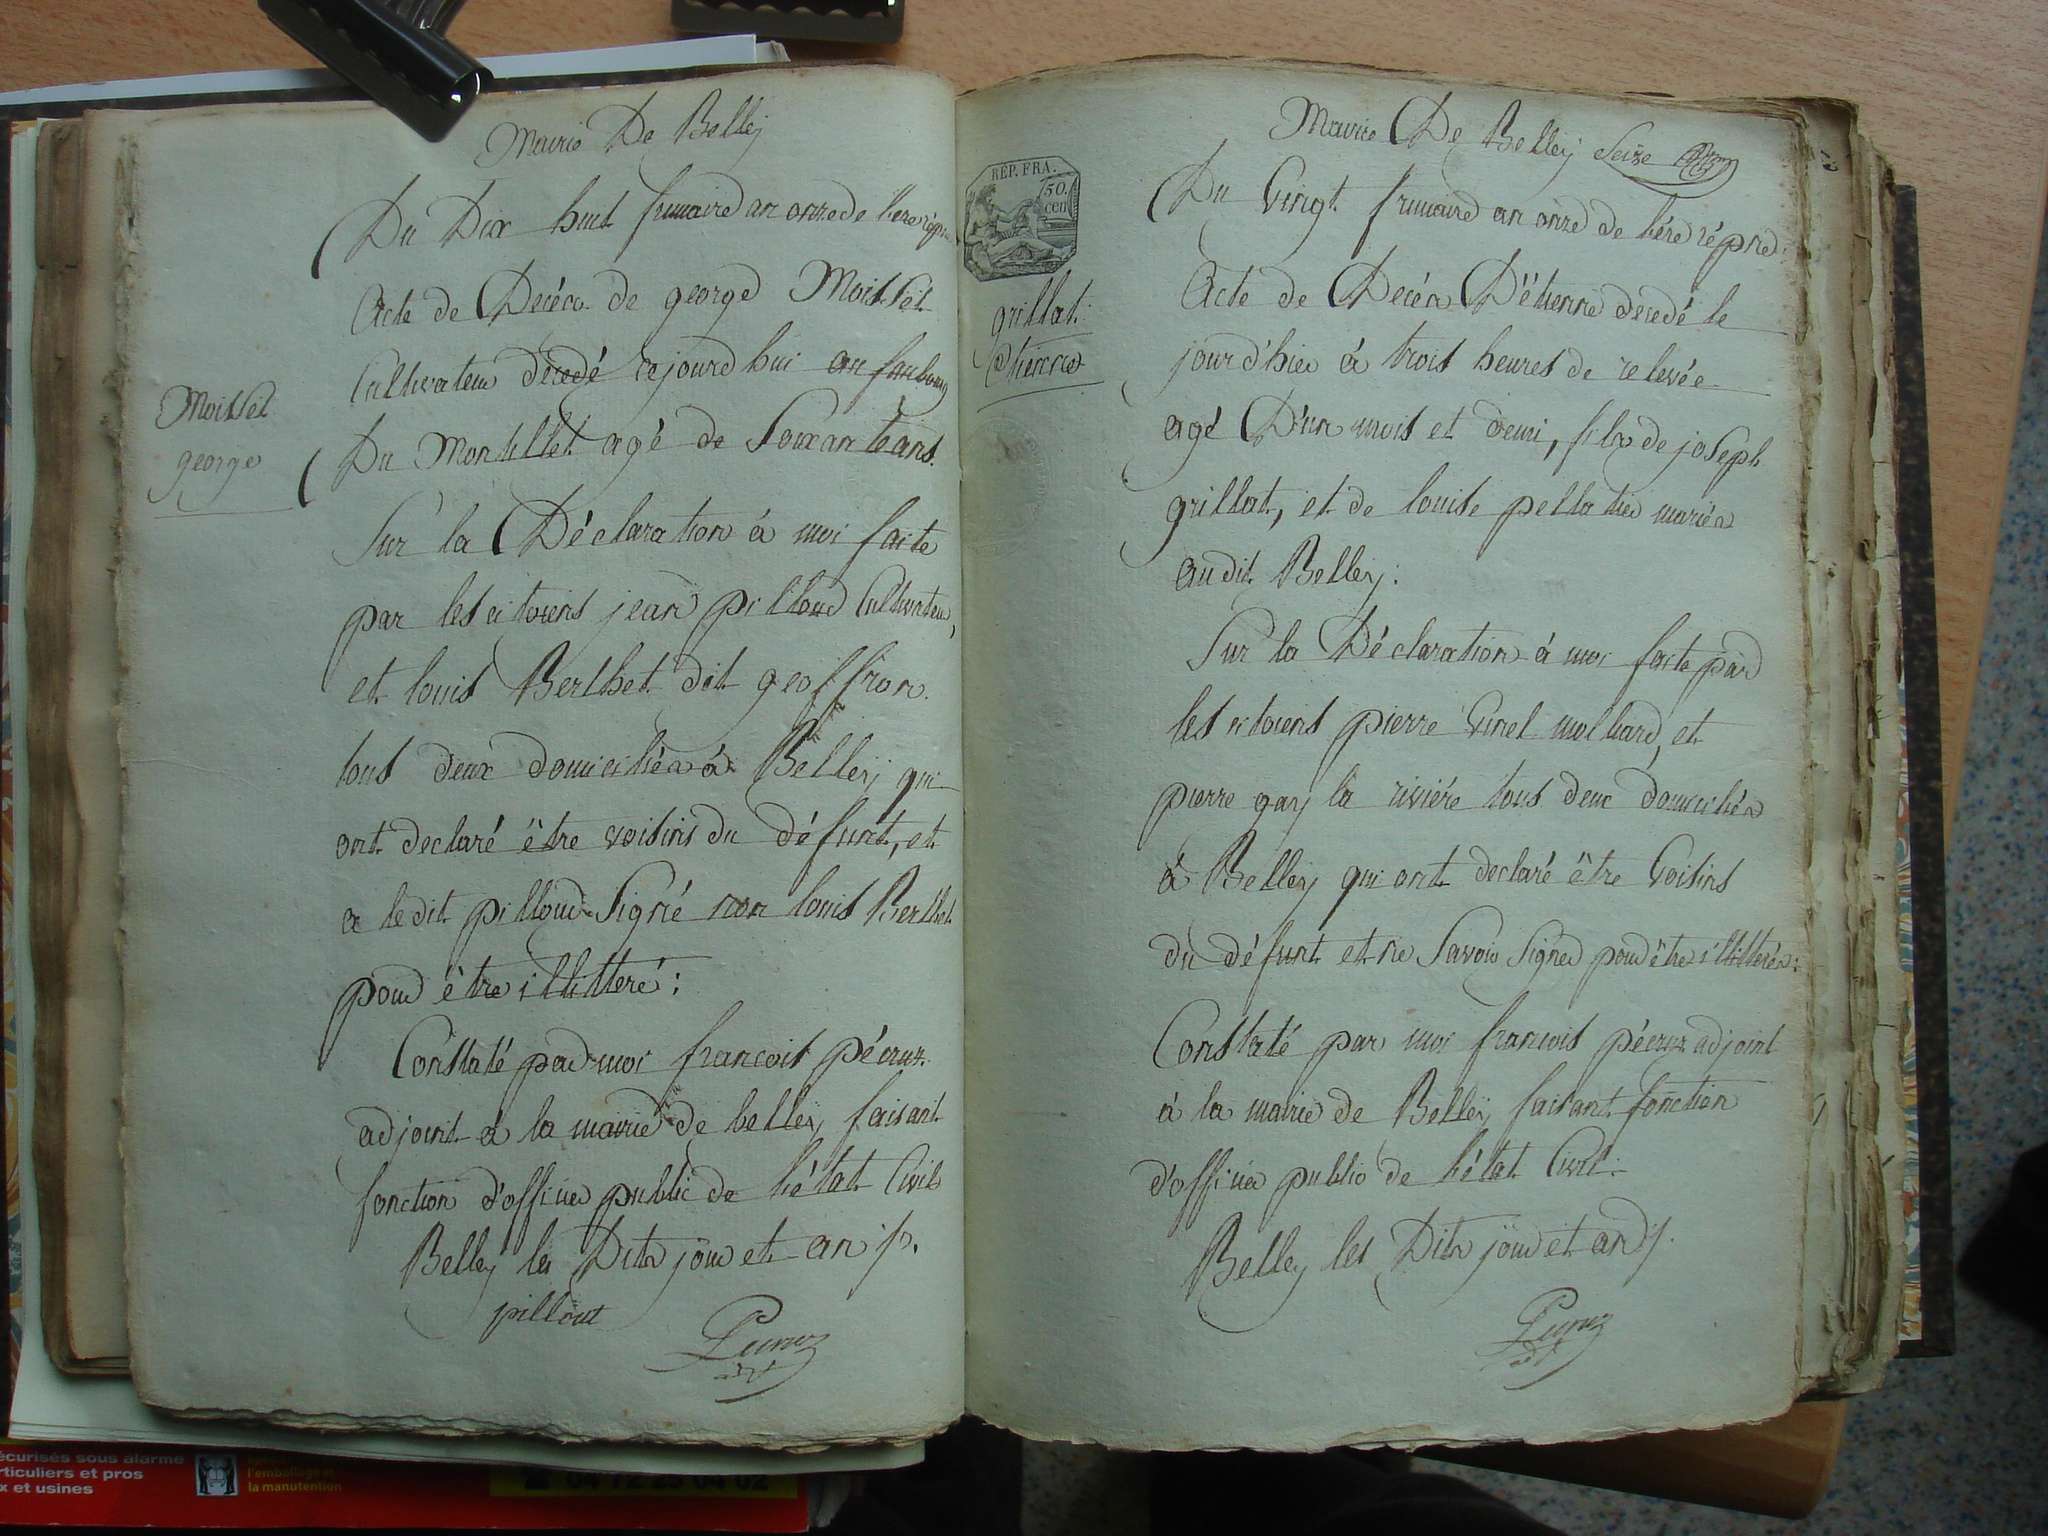 Mairie De Belleÿ
Du Dix huit frimaire an onze de l'ere répne
Acte de Decéco de george Moissel
Cultivateur décedé cejourd'hui au faubourg
Du Montillet agé de Soixante ans.
Moissel
george
Sur la Déclaration à moi faite
par les citoiens jean pilloud Cultivateur,
et louis Berthet dit geoffron.
tous deux domiciliés à Belleÿ qui
ont declaré être voisins du défunt, et
a ledit pilloud Signé non louis Berthet
pour être illitteré:
Constaté par moi françois pécruz
adjoint à la mairie de belleÿ faisant
fonction d'officier public de l'état Civil
Belleÿ les Dits jour et an
pillout
Mairie De Belleÿ Seize
RÉP. FRA.
50.
cen
Du Vingt frimaire an onze de l'ére répne:
grillat
Etienne
Acte de Decés D'ëtienne decedé le
jour d'hier à trois heures de relevée
agé D'un mois et demi, fils de joseph
grillat, et de louise pellatier mariés
audit Belleÿ:
Sur la Déclaration à moi faite par
les citoiens pierre Vinet molliard, et
pierre gaÿ la riviére tous deux domiciliés
à Belleÿ qui ont declaré être Voisins
du défunt et ne Savoir Signer pour être illitterés:
Constaté par moi françois pécruz adjoint
à la mairie de Belleÿ faisant fonction
d'officier public de l'état Civil
Belleÿ les Dits jour et an
écurisés sous alarme
rticuliers et pros
x et usines
l'emballage et
la manutention
04 72 23 04 02